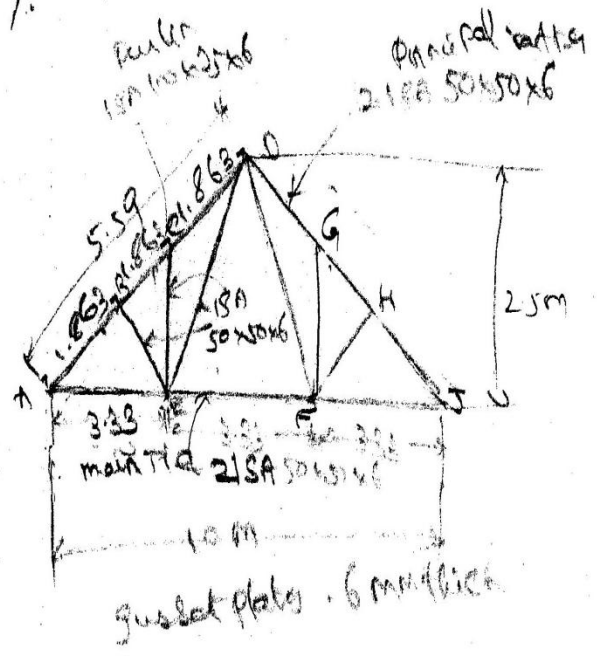 1.
Purlin
ISA 100x75x6
Principal rafter
2 ISA 50x50x6
D
5.59
1.863
1.863
1.863
C
B
G
ISA
50x50x6
H
2.5m
A
E
F
J
3.33
3.33
3.33
main Tie 2ISA 50x50x6
10 m
gusset plates . 6 mm thick